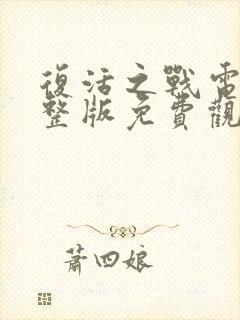 復活之戰電
整版免費觀
蕭四娘